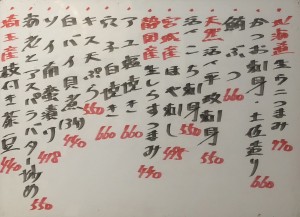 北海道産生ウニつまみ 770
かつお刺身・土佐造り 660
ぶつ
天然活〆平政刺身 550
宮城産生ほや刺し 495
静岡産生しらすつまみ 440
アユ塩焼き 660
穴子白焼き 660
キス天ぷら 550
白バイ貝煮
ソイ南蛮漬け
海老とアスパラバター炒め 550
埼玉産枝付き茶豆 440